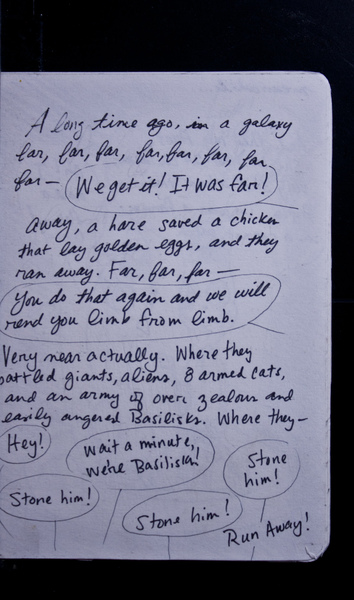 A long time ago, in a galaxy
far, far, far, far, far, far, far
far— We get it! It was far!
away, a hare saved a chicken
that lay golden eggs, and they
ran away. Far, far, far—
You do that again and we will
rend you limb from limb.
Very near actually. Where they
battled giants, aliens, 8 armed cats,
and an army of over zealous and
easily angered Basilisks. Where they—
Hey!
wait a minute,
we're Basilisks!
Stone
him!
Stone him!
Stone him!
Run Away!